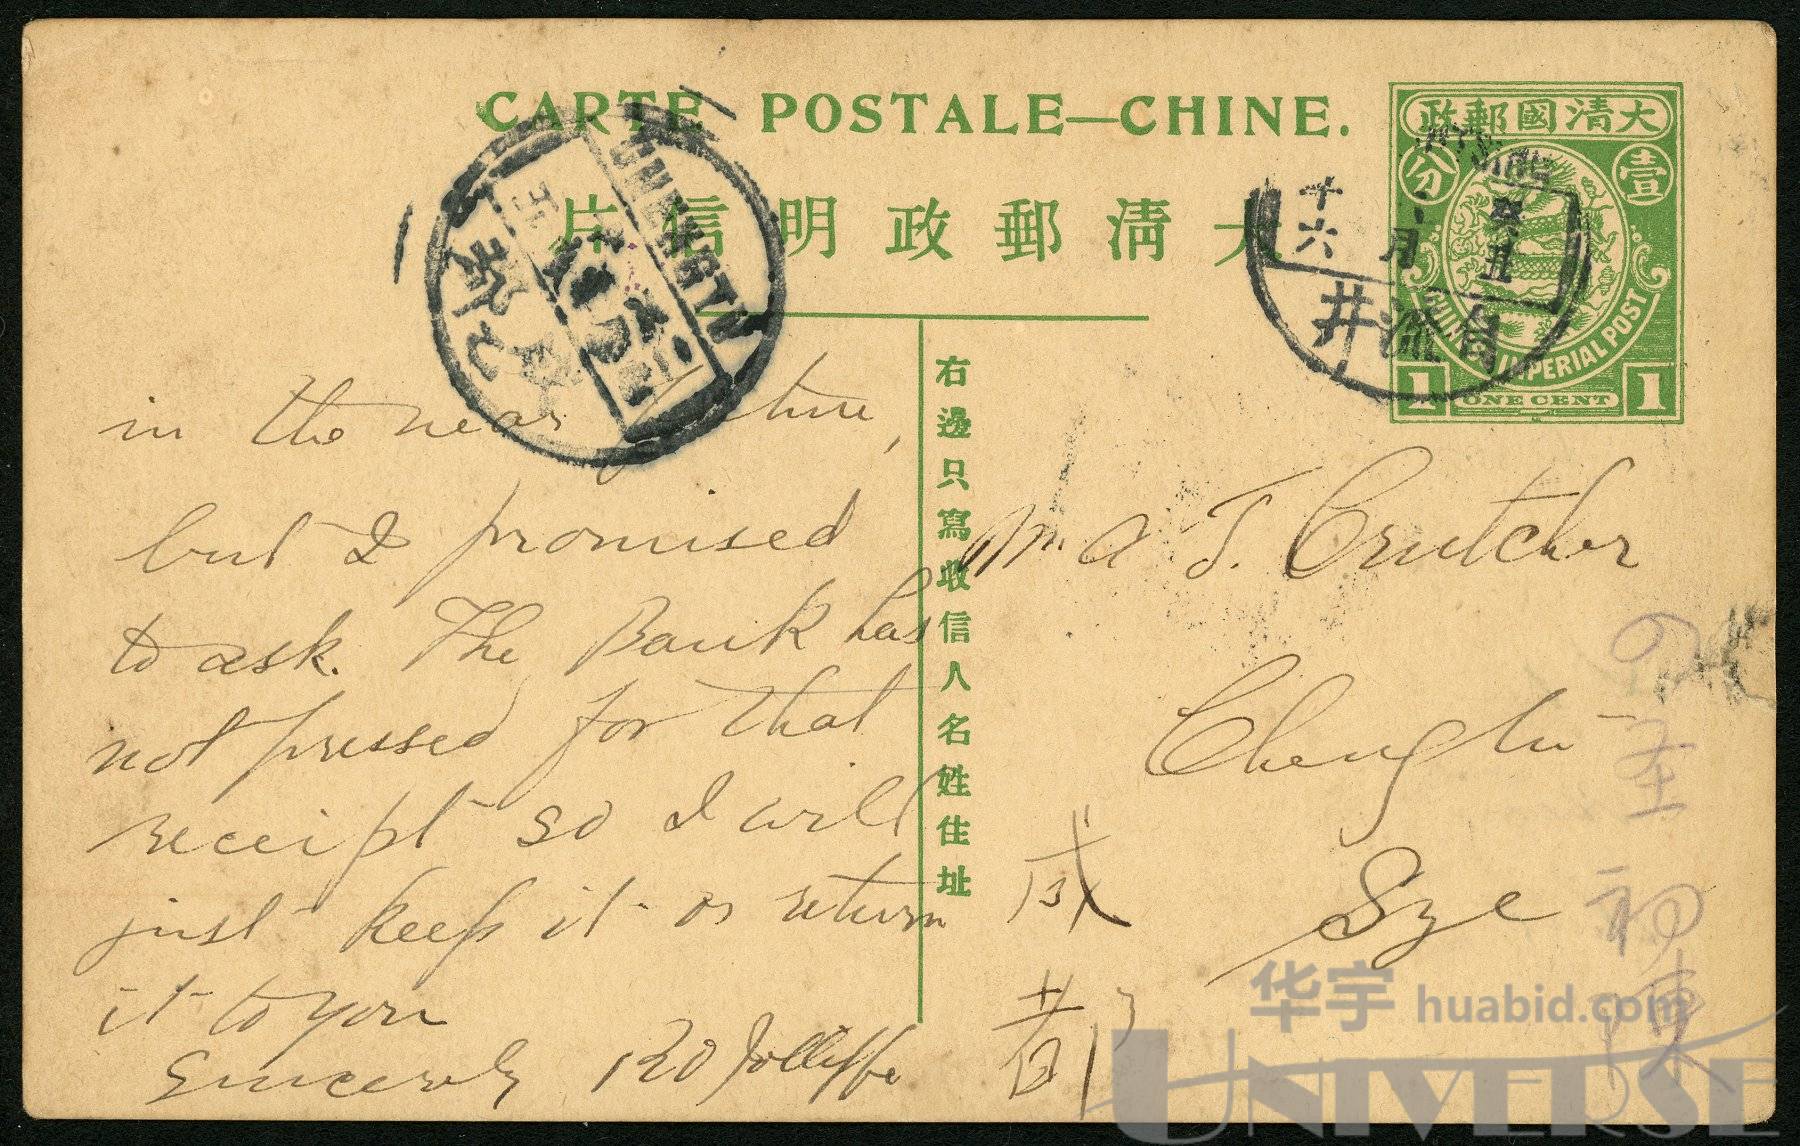 CARTE POSTALE—CHINE.
大清郵政明信片
大清國郵政
壹分
CHINESE IMPERIAL POST
1 ONE CENT 1
癸丑
月
十六
自流井
CHENGTU
右邊只寫收信人名姓住址
in the near future,
but I promised
to ask. The Bank has
not pressed for that
receipt so I will
just keep it or return
it to you
Sincerely RO Jolliffe
A T. Crutcher
Chengtu
Sze
成都
华宇 huabid.com
UNIVERSE